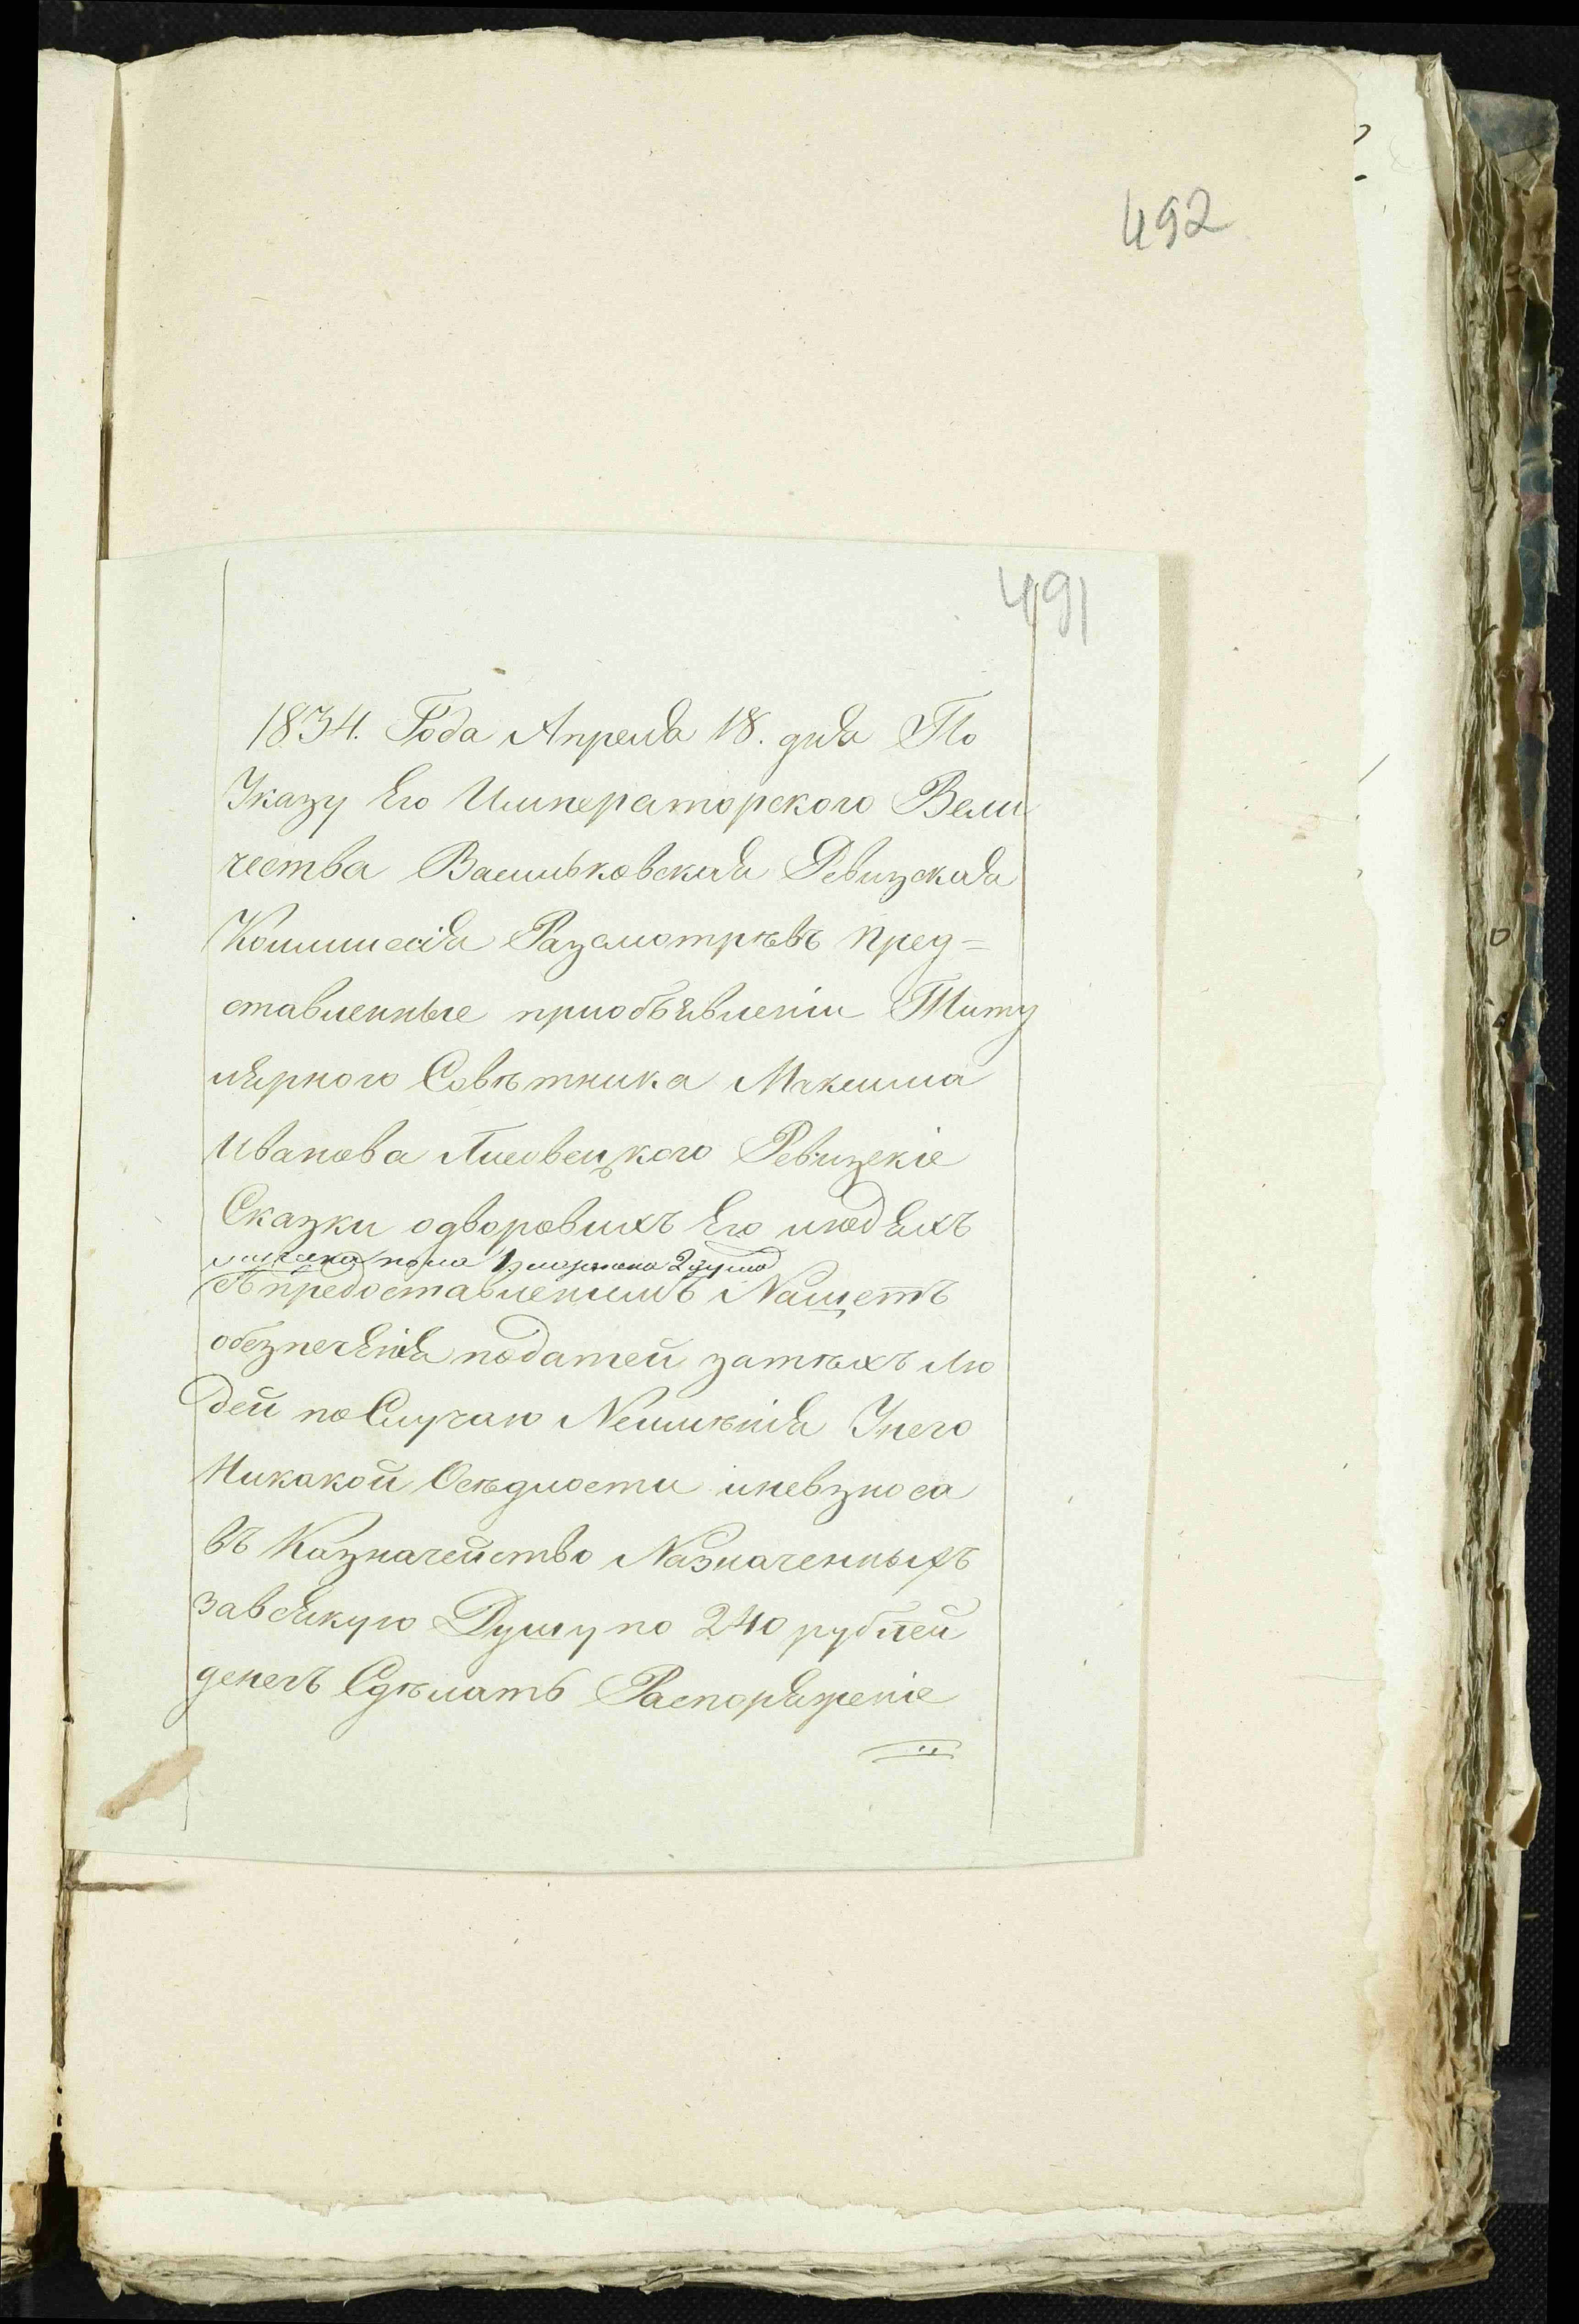 492
491
1834. Года Апреля 18. дня По
Указу Его Императорского Вели
чества Васильковская Ревизская
Коммиссія Разсмотрѣвъ пред=
ставленные приобъявленіи Титу
лярного Совѣтника Максима
Иванова Лисовецкого Ревизскіе
Сказки одворовыхъ Его людяхъ
мужска пола 1, женска 2 души
съ предоставленіемъ Нащетъ
обезпечянія податей затѣхъ Лю
дей по Случаю Неимѣнія Унего
Никакой Осѣдлости иневзноса
въ Казначейство Назначенныхъ
завсякую Душу по 240 рублей
денегъ Сдѣлать Распоряженіе